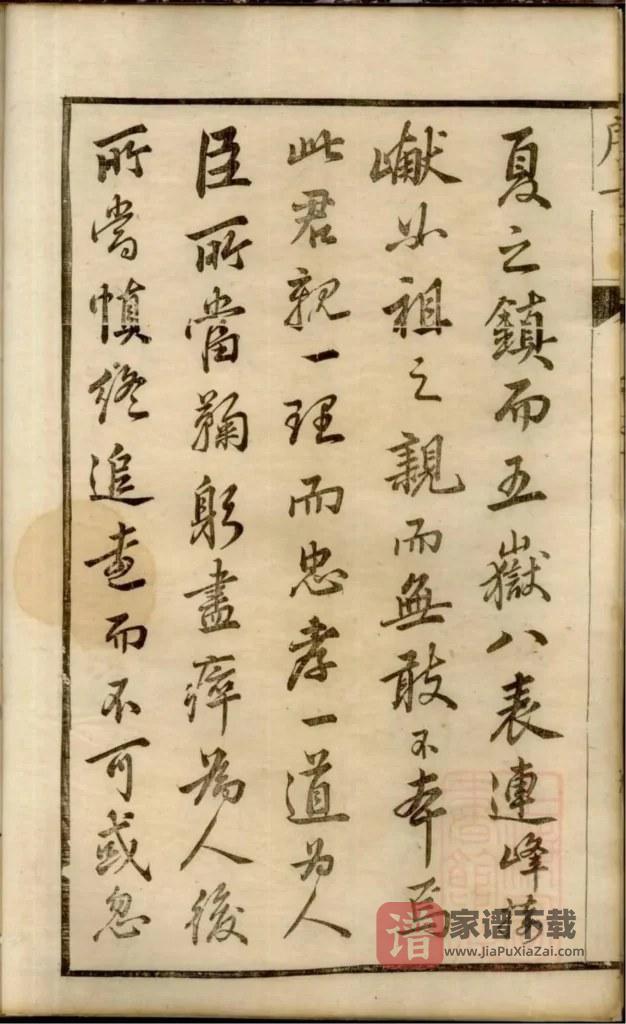 序一
夏之鎮而五嶽八表連峰
巘如祖之親而無敢不夲焉
此君親一理而忠孝一道為人
臣所當鞠躬盡瘁為人後
所當慎終追遠而不可或忽
谱 家谱下载
www.JiaPuXiaZai.com